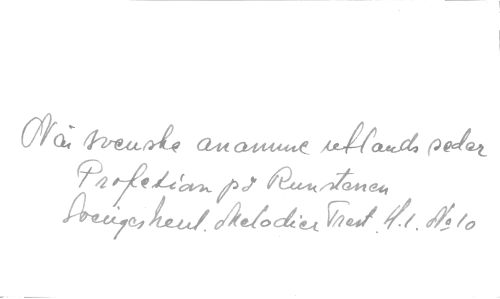 När svenske anamme utlands seder
Profetian på Runstenen
Sverigesheul. Melodier Trast. H.1. No 10